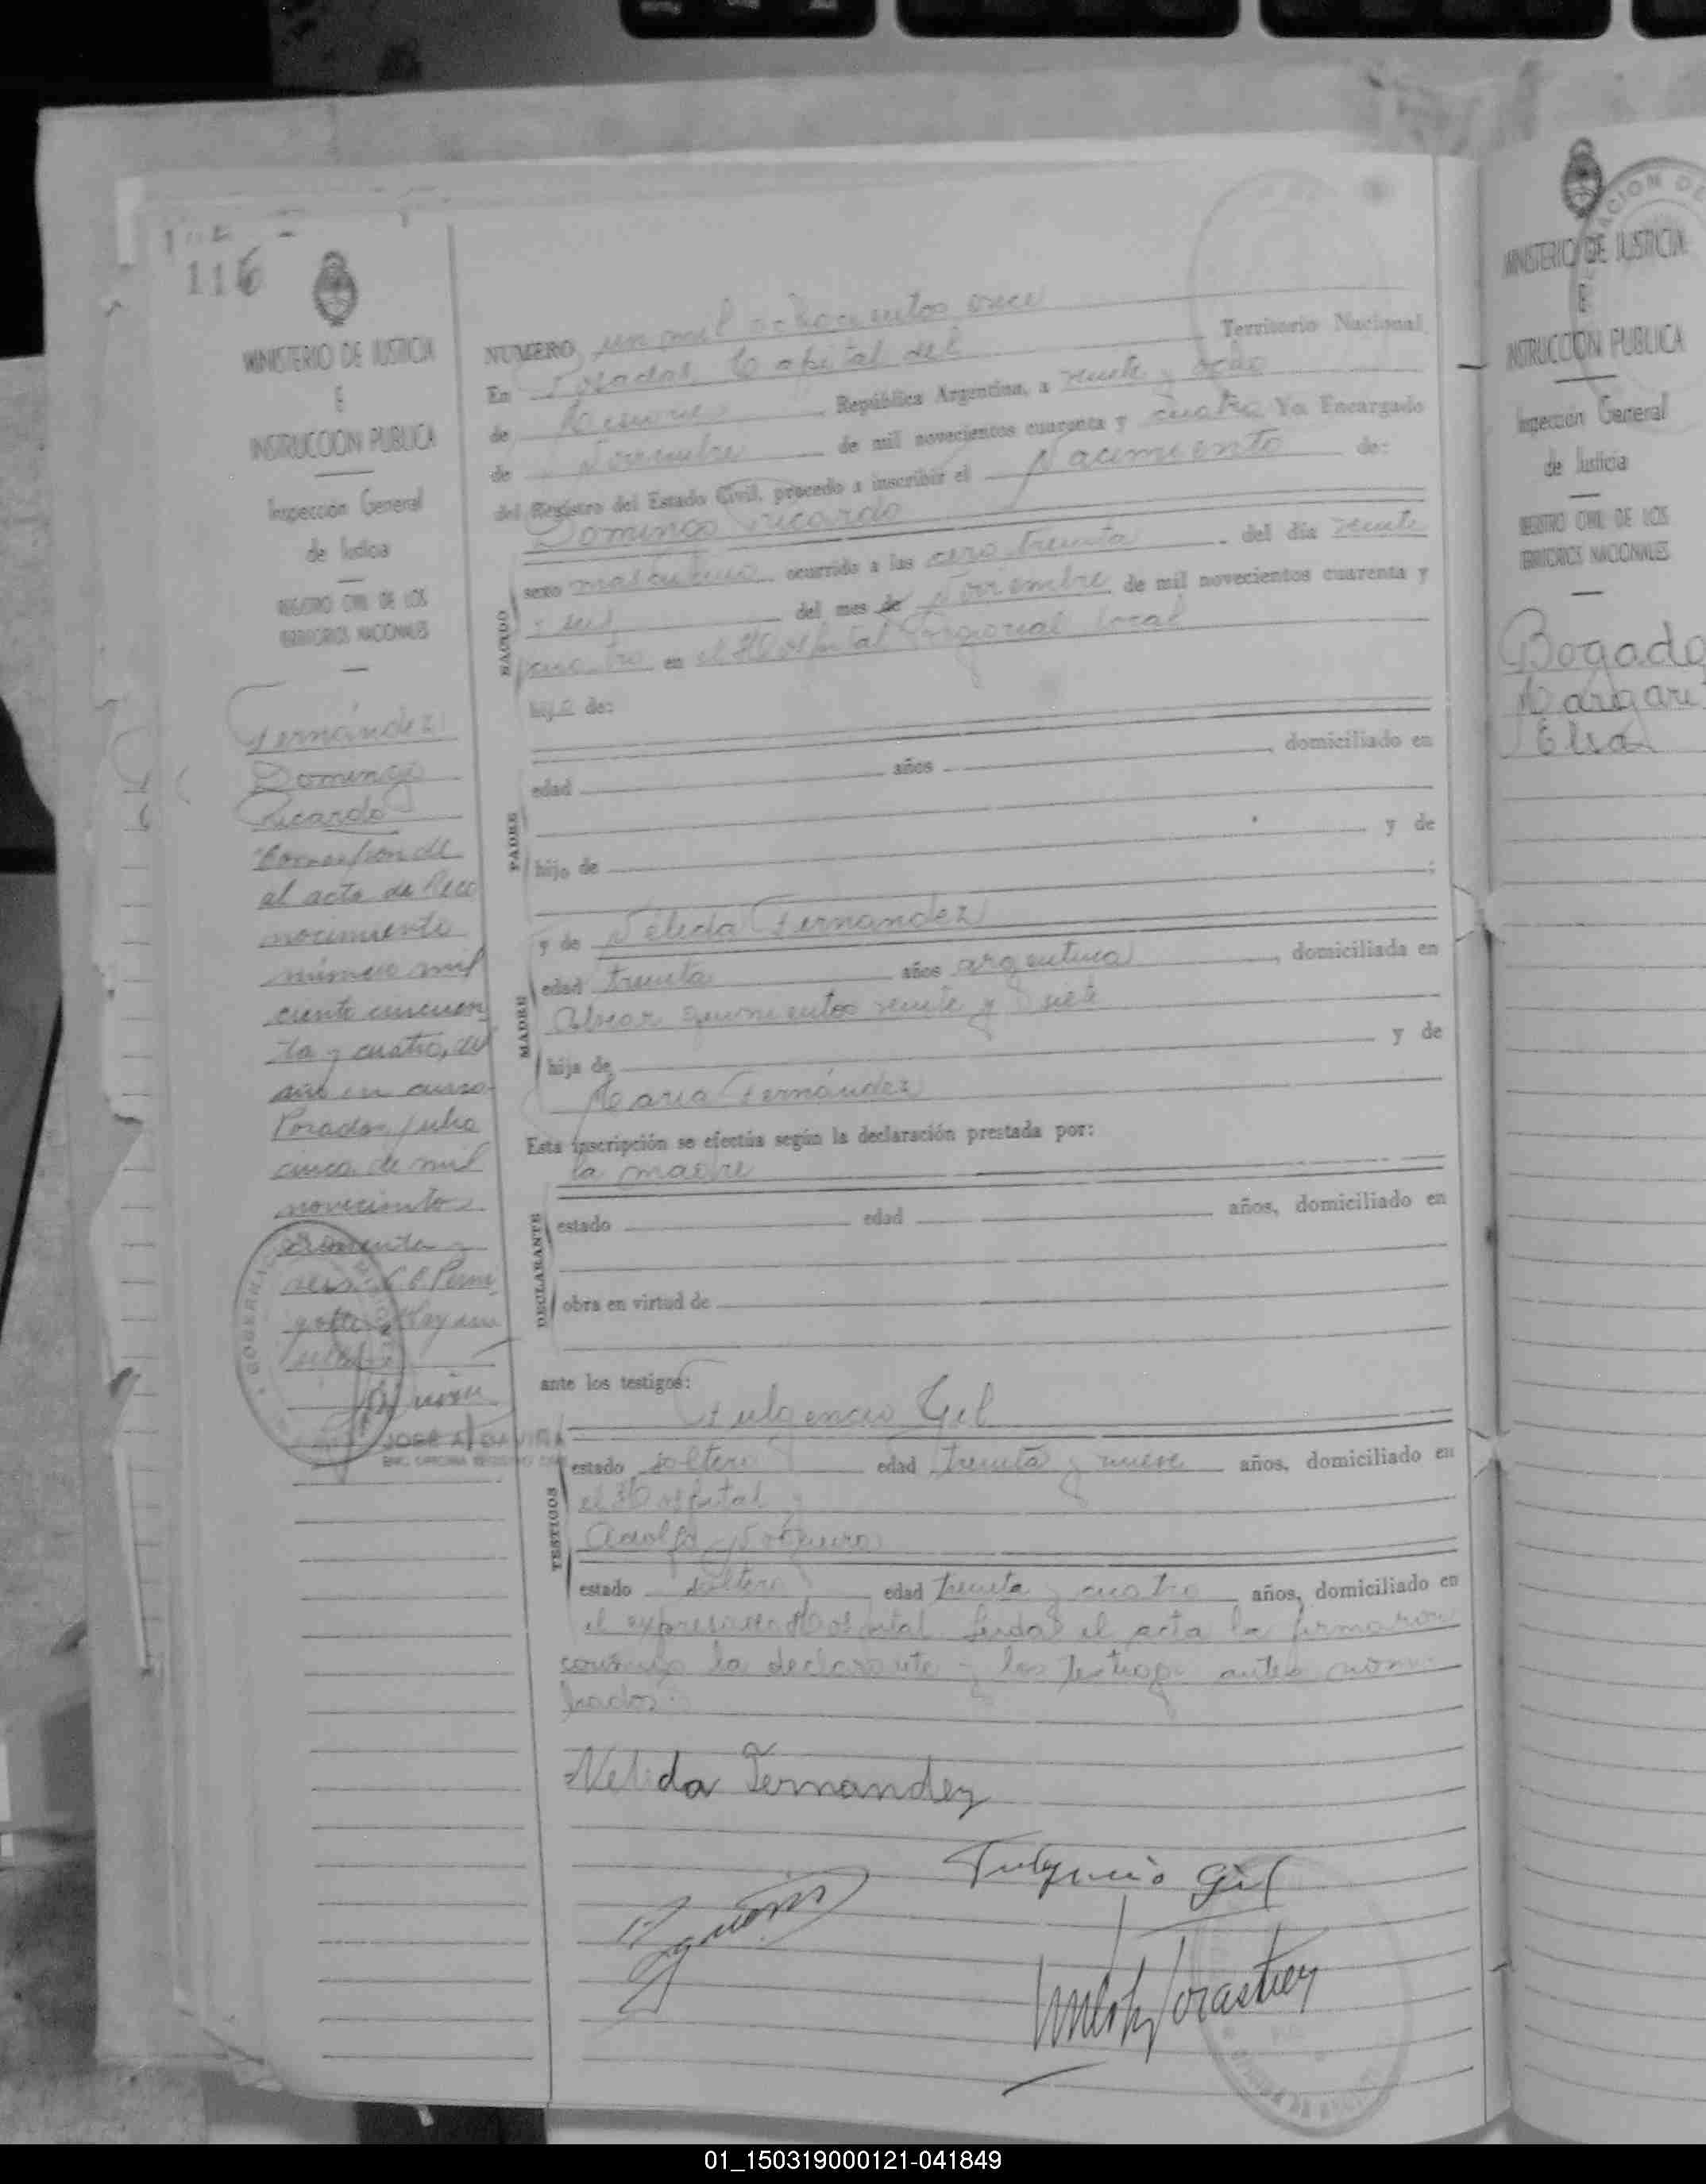 116
MINISTERIO DE JUSTICIA
E
INSTRUCCION PUBLICA
Inspección General
de Justicia
REGISTRO CIVIL DE LOS
TERRITORIOS NACIONALES
Fernández
Domingo
Ricardo
al acta de Reco
nocimiento
número mil
ciento cincuen
ta y cuatro, del
año en curso.
Posadas, Julio
cinco de mil
novecientos
JOSE A. GAVIÑA
NUMERO un mil ochocientos once
En Posadas, Capital del Territorio Nacional
de Misiones República Argentina, a veinte y ocho
de Noviembre de mil novecientos cuarenta y cuatro Yo Encargado
del Registro del Estado Civil, procedo a inscribir el Nacimiento de:
Domingo Ricardo
NACIDO
sexo masculino ocurrido a las cero treinta del día veinte
y seis del mes de Noviembre de mil novecientos cuarenta y
cuatro en el Hospital Regional local
hijo de:
PADRE
edad años , domiciliado en
hijo de y de
;
MADRE
y de Nélida Fernandez
edad treinta años argentina , domiciliada en
Alvear quinientos veinte y siete
hija de y de
María Fernández
Esta inscripción se efectúa según la declaración prestada por:
la madre
DECLARANTE
estado edad años, domiciliado en
obra en virtud de
ante los testigos:
Fulgencio Gil
TESTIGOS
estado soltero edad treinta y nueve años, domiciliado en
el Hospital y
Adolfo
estado soltero edad treinta y cuatro años, domiciliado en
el expresado Hospital. Leida el acta la firmaron
conmigo la declarante y los testigos antes nom
brados.
Nelida Fernandez
Fulgencio Gil
MINISTERIO DE JUSTICIA
E
INSTRUCCION PUBLICA
Inspección General
de Justicia
REGISTRO CIVIL DE LOS
TERRITORIOS NACIONALES
Bogado
Margari
Elsa
01_150319000121-041849